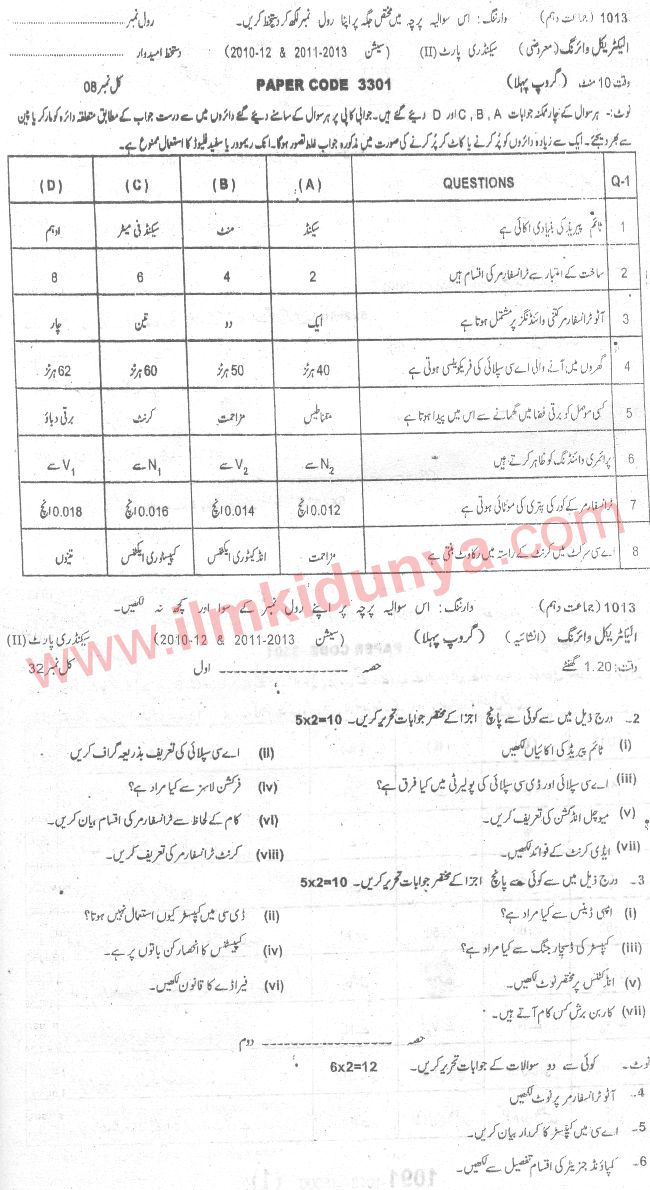 1013 (جماعت دہم) وارننگ: اس سوالیہ پرچہ میں مختص جگہ پر اپنا رول نمبر لکھ کر دستخط کریں۔ رول نمبر
الیکٹریکل وائرنگ (معروضی) سیکنڈری پارٹ (II) (سیشن 2011-2013 & 2010-12) دستخط امیدوار
وقت 10 منٹ (گروپ پہلا) PAPER CODE 3301 کل نمبر 08
نوٹ:- ہر سوال کے چار ممکنہ جوابات C, B, A اور D دیئے گئے ہیں۔ جوابی کاپی پر ہر سوال کے سامنے دیئے گئے دائروں میں سے درست جواب کے مطابق متعلقہ دائرہ کو مارکر یا پین
سے بھر دیجئے۔ ایک سے زیادہ دائروں کو پُر کرنے یا کاٹ کر پُر کرنے کی صورت میں مذکورہ جواب غلط تصور ہوگا۔ انک ریموور یا سفید فلیوڈ کا استعمال ممنوع ہے۔
Q-1 QUESTIONS (A) (B) (C) (D)
1 ٹائم پیریڈ کی بنیادی اکائی ہے سیکنڈ منٹ سیکنڈ فی میٹر اوہم
2 ساخت کے اعتبار سے ٹرانسفارمر کی اقسام ہیں 2 4 6 8
3 آٹو ٹرانسفارمر کتنی وائنڈنگز پر مشتمل ہوتا ہے ایک دو تین چار
4 گھروں میں آنے والی اے سی سپلائی کی فریکوئنسی ہوتی ہے 40 ہرٹز 50 ہرٹز 60 ہرٹز 62 ہرٹز
5 کسی موصل کو برقی فضا میں گھمانے سے اس میں پیدا ہوتا ہے مقناطیس مزاحمت کرنٹ برقی دباؤ
6 پرائمری وائنڈنگ کو ظاہر کرتے ہیں N2 سے V2 سے N1 سے V1 سے
7 ٹرانسفارمر کے کور کی پتری کی موٹائی ہوتی ہے 0.012 انچ 0.014 انچ 0.016 انچ 0.018 انچ
8 اے سی سرکٹ میں کرنٹ کے راستہ میں رکاوٹ بنتی ہے مزاحمت انڈکٹوری ایکٹنس کپیسٹوری ایکٹنس تینوں
www.ilmkidunya.com
1013 (جماعت دہم) وارننگ: اس سوالیہ پرچہ پر اپنے رول نمبر کے سوا اور کچھ نہ لکھیں۔
الیکٹریکل وائرنگ (انشائیہ) (گروپ پہلا) (سیشن 2011-2013 & 2010-12) سیکنڈری پارٹ (II)
وقت: 1.20 گھنٹے حصہ اول کل نمبر 32
2۔ درج ذیل میں سے کوئی سے پانچ اجزا کے مختصر جوابات تحریر کریں۔ 5x2=10
(i) ٹائم پیریڈ کی اکائیاں لکھیں (ii) اے سی سپلائی کی تعریف بذریعہ گراف کریں
(iii) اے سی سپلائی اور ڈی سی سپلائی کی پولیرٹی میں کیا فرق ہے؟ (iv) فرکشن لاسز سے کیا مراد ہے؟
(v) میوچل انڈکشن کی تعریف کریں۔ (vi) کام کے لحاظ سے ٹرانسفارمر کی اقسام بیان کریں۔
(vii) ایڈی کرنٹ کے فوائد لکھیں۔ (viii) کرنٹ ٹرانسفارمر کی تعریف کریں۔
3۔ درج ذیل میں سے کوئی سے پانچ اجزا کے مختصر جوابات تحریر کریں۔ 5x2=10
(i) امپی ڈینس سے کیا مراد ہے؟ (ii) ڈی سی میں کپیسٹر کیوں استعمال نہیں ہوتا؟
(iii) کپسٹر کی ڈسچارجنگ سے کیا مراد ہے؟ (iv) کپیسٹنس کا انحصار کن باتوں پر ہے۔
(v) انڈکٹنس پر مختصر نوٹ لکھیں۔ (vi) فیراڈے کا قانون لکھیں۔
(vii) کاربن برش کس کام آتے ہیں۔
حصہ دوم
نوٹ۔ کوئی سے دو سوالات کے جوابات تحریر کریں۔ 6x2=12
4۔ آٹو ٹرانسفارمر پر نوٹ لکھیں
5۔ اے سی میں کپسٹر کا کردار بیان کریں۔
6۔ کمپاؤنڈ جنریٹر کی اقسام تفصیل سے لکھیں۔